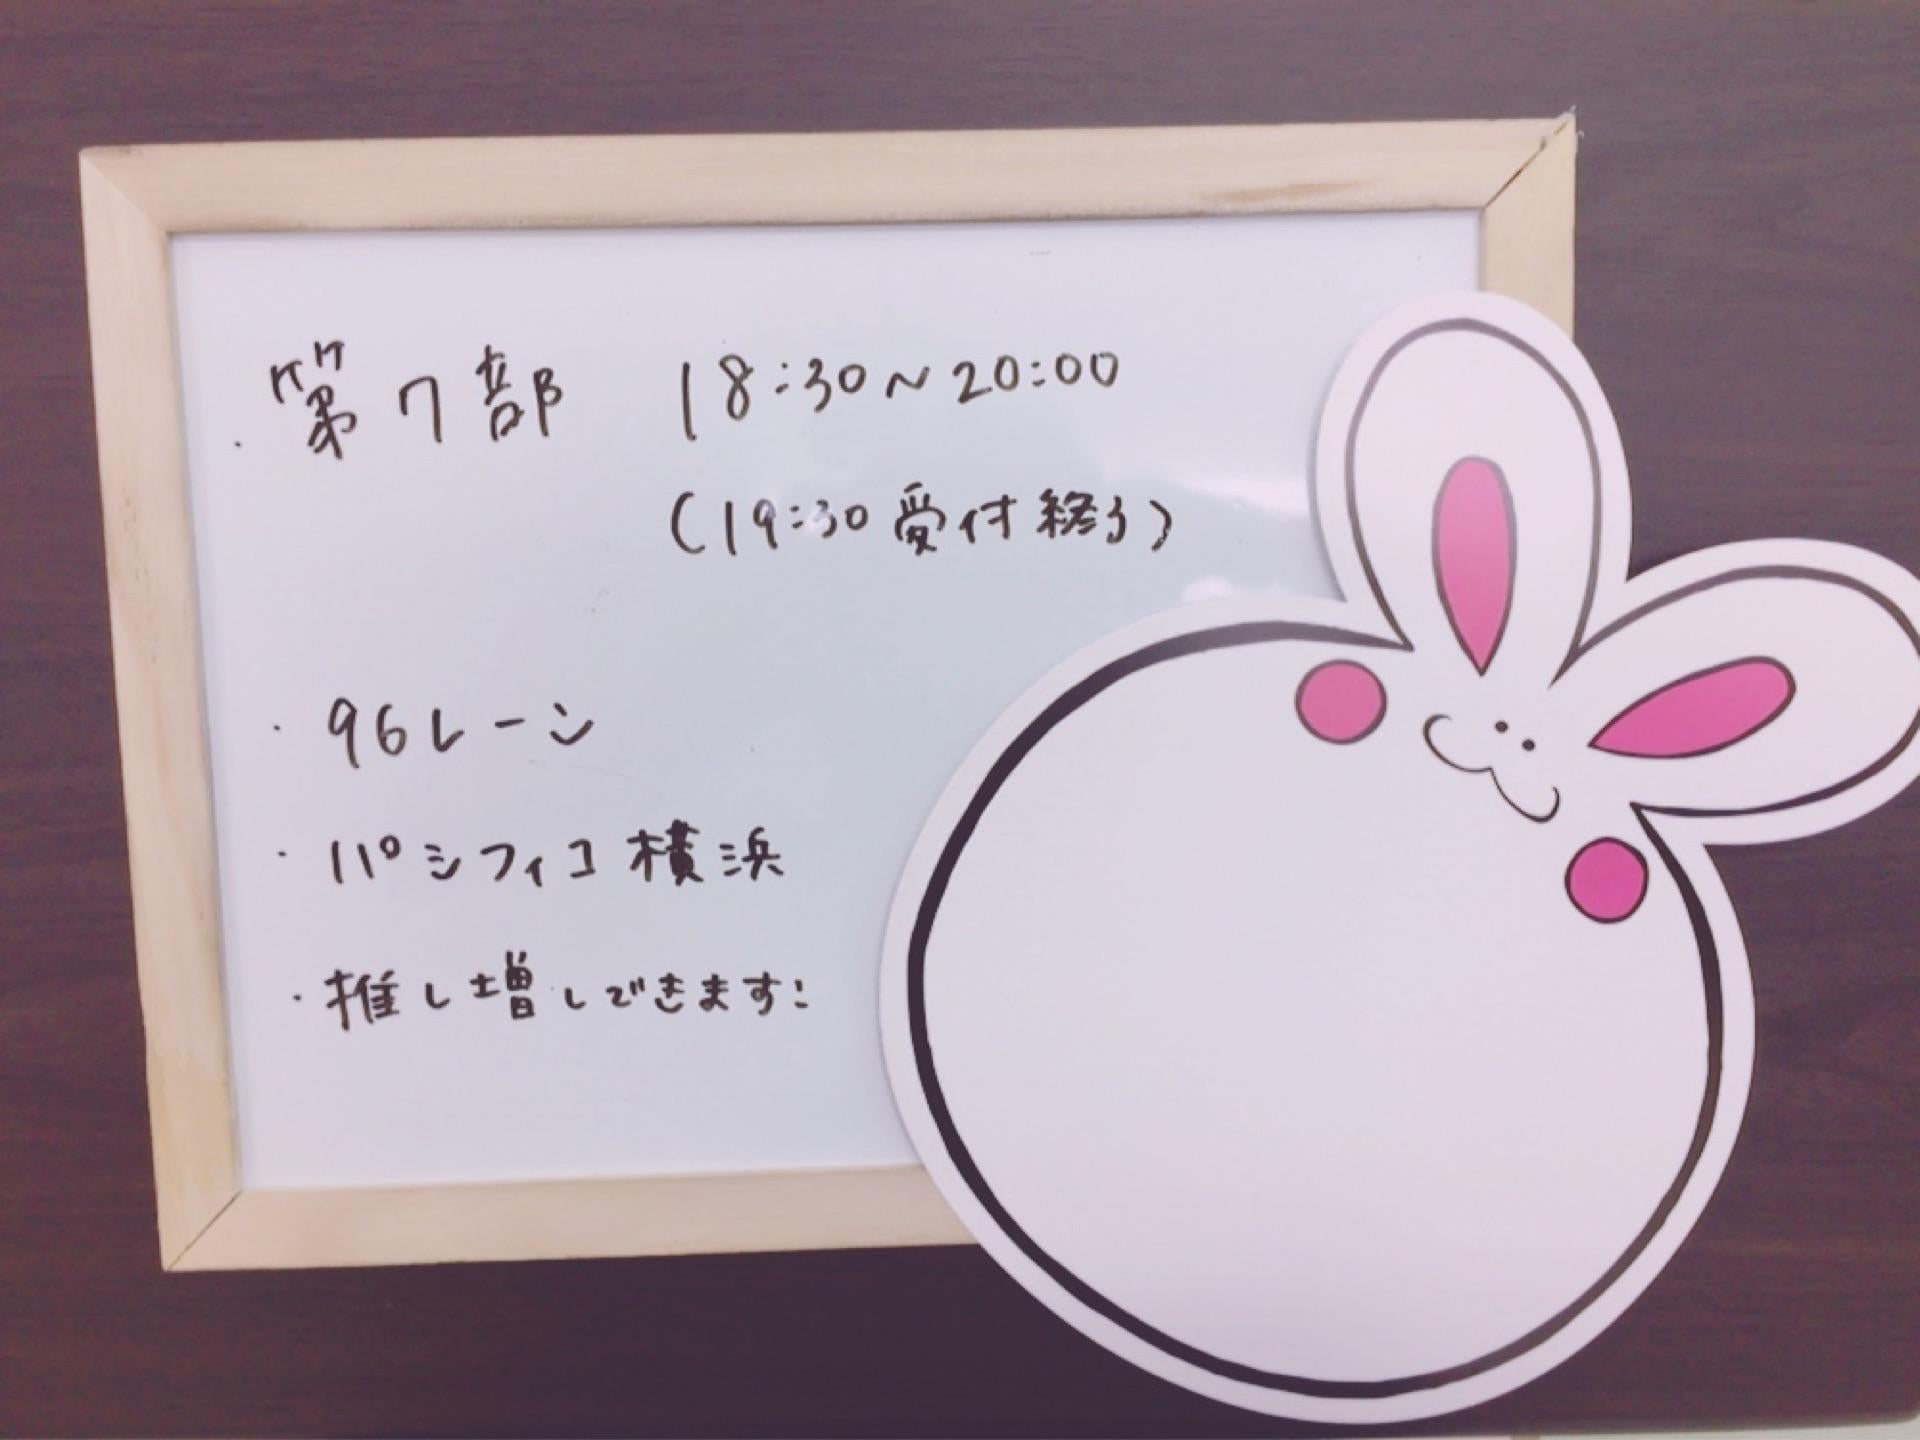 ・第7部 18:30~20:00
(19:30受付終了)
・96レーン
・パシフィコ横浜
・推し増しできます: